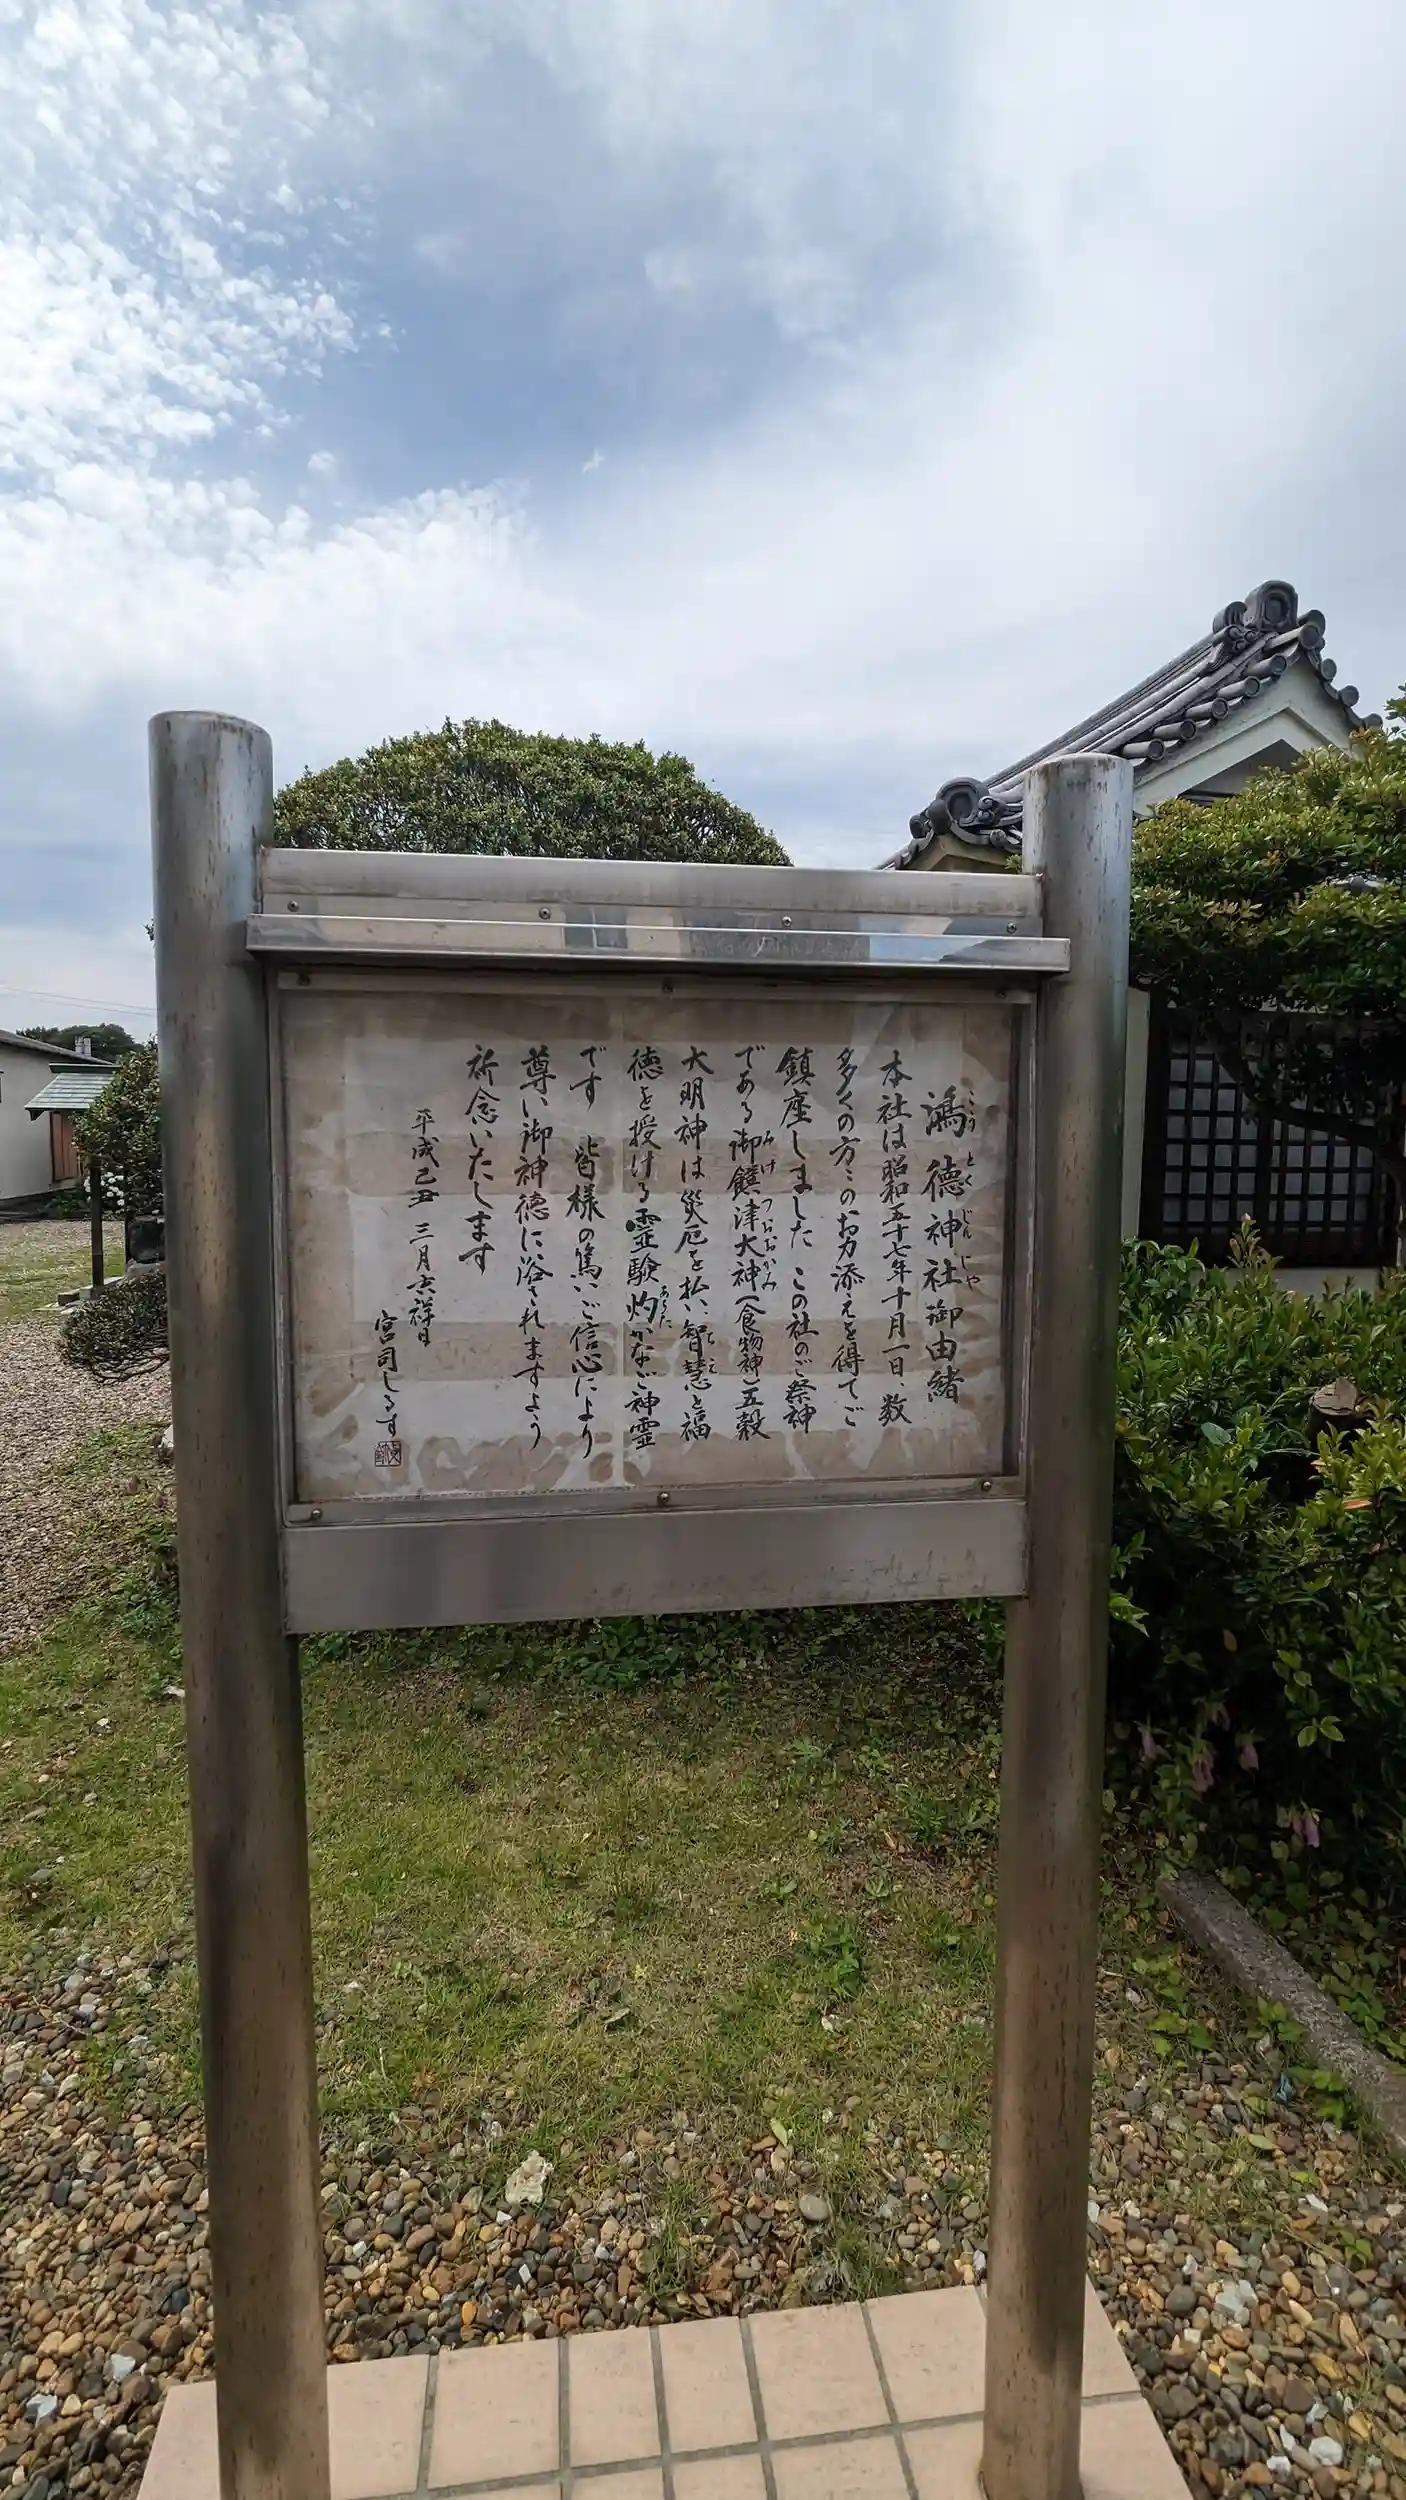 鴻德神社御由緒
こうとくじんじゃ
本社は昭和五十七年十月一日、数
多くの方々のお力添えを得てご
鎮座しました この社のご祭神
である御饌津大神(食物神)五穀
みけつおおかみ
大明神は災厄を払い智慧と福
ちえ
徳を授ける霊験灼かなご神霊
あらた
です 皆様の篤いご信心により
尊い御神徳に浴されますよう
祈念いたします
平成己丑 三月吉祥日
宮司しるす